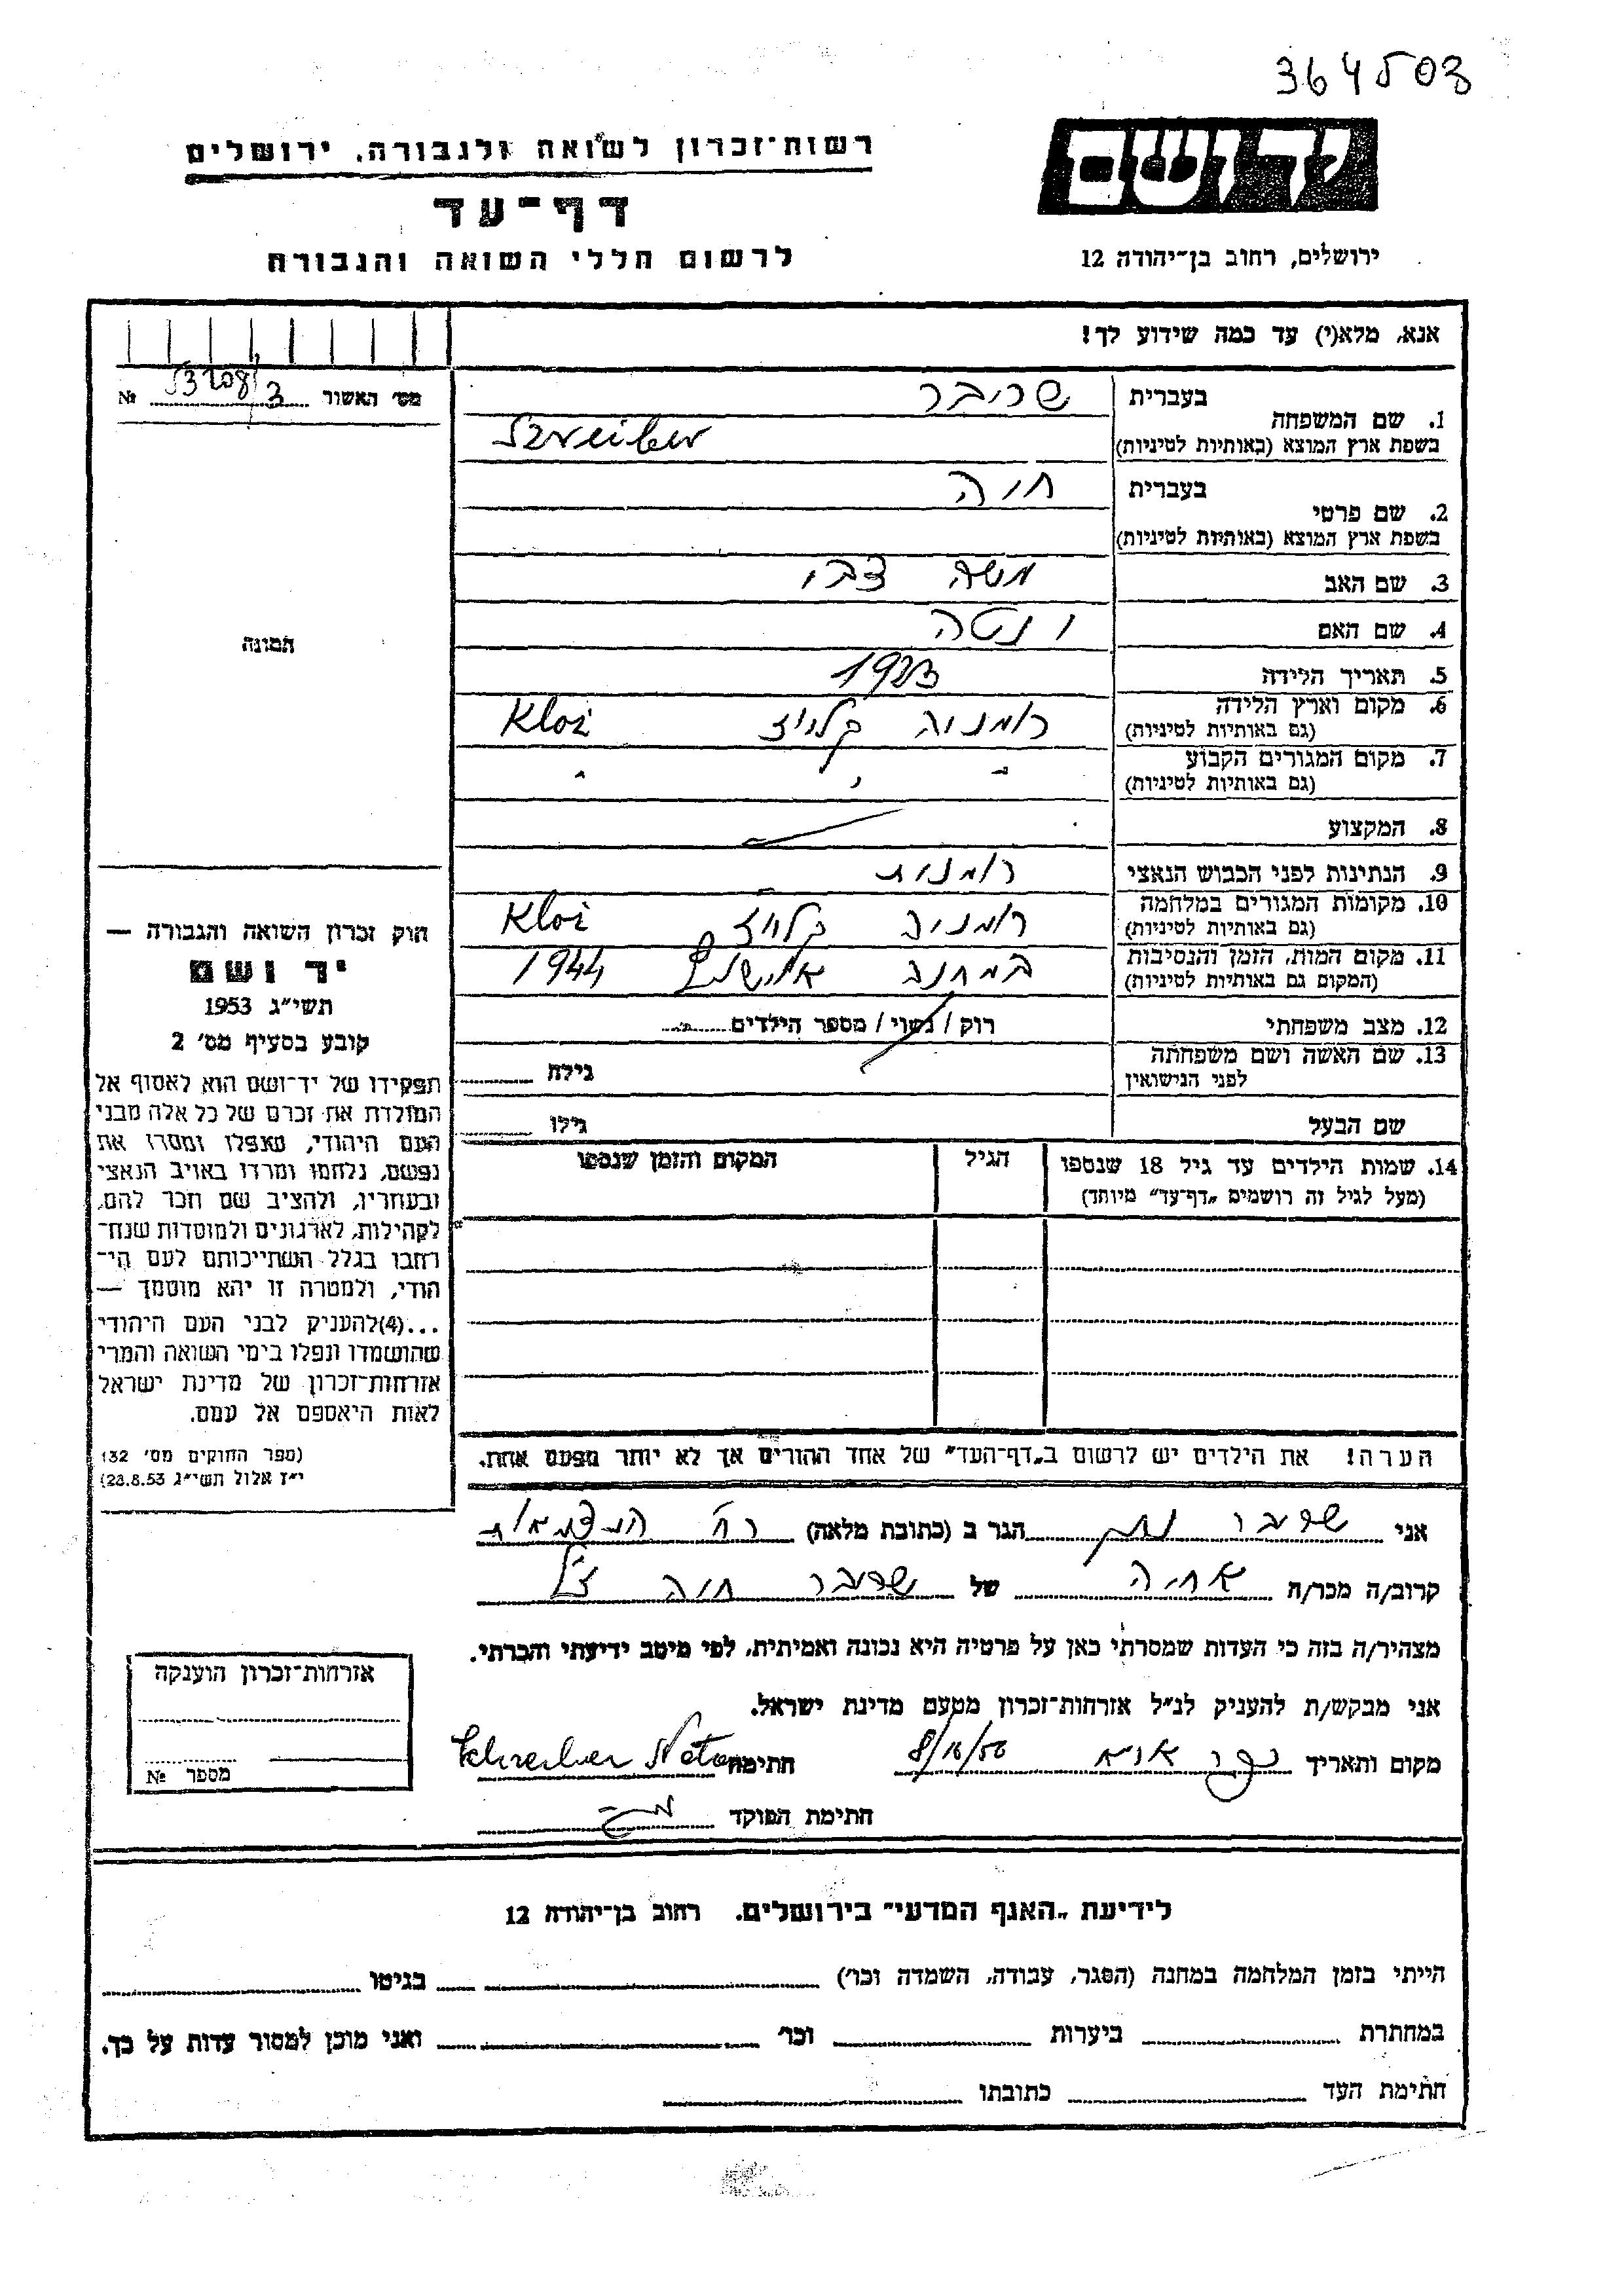 364508
רשות־זכרון לשואה ולגבורה, ירושלים
ידושם
דף־עד
לרשום חללי השואה והגבורה
ירושלים, רחוב בן־יהודה 12
אנא, מלא(י) עד כמה שידוע לך!
מס׳ האשור 3 № 53208
1. שם המשפחה
בעברית שריבר
בשפת ארץ המוצא (באותיות לטיניות) Szreiber
2. שם פרטי
בעברית חוה
בשפת ארץ המוצא (באותיות לטיניות)
3. שם האב משה צבי
4. שם האם ונטה
5. תאריך הלידה 1923
6. מקום וארץ הלידה רומניה קלויז Kloż
(גם באותיות לטיניות)
7. מקום המגורים הקבוע
(גם באותיות לטיניות)
8. המקצוע
9. הנתינות לפני הכבוש הנאצי רומנית
10. מקומות המגורים במלחמה רומניה קלויז Kloż
(גם באותיות לטיניות)
11. מקום המות, הזמן והנסיבות במחנה אוישוויץ 1944
(המקום גם באותיות לטיניות)
12. מצב משפחתי רוק / נשוי / מספר הילדים
13. שם האשה ושם משפחתה
לפני הנישואין
גילה
שם הבעל גילו
14. שמות הילדים עד גיל 18 שנספו הגיל המקום והזמן שנספו
(מעל לגיל זה רושמים „דף־עד״ מיוחד)
הערה! את הילדים יש לרשום ב„דף־העד״ של אחד ההורים אך לא יותר מפעם אחת.
תמונה
חוק זכרון השואה והגבורה —
יד ושם
תשי״ג 1953
קובע בסעיף מס׳ 2
תפקידו של יד־ושם הוא לאסוף אל
המולדת את זכרם של כל אלה מבני
העם היהודי, שנפלו ומסרו את
נפשם, נלחמו ומרדו באויב הנאצי
ובעוזריו, ולהציב שם וזכר להם,
לקהילות, לארגונים ולמוסדות שנח־
רחבו בגלל השתייכותם לעם הי־
הודי, ולמטרה זו יהא מוסמך —
...(4)להעניק לבני העם היהודי
שהושמדו ונפלו בימי השואה והמרי
אזרחות־זכרון של מדינת ישראל
לאות היאספם אל עמם.
(ספר החוקים מס׳ 132
י״ז אלול תשי״ג 28.8.53)
אני שריבר נתן הגר ב (כתובת מלאה) רח׳ העצמאות
קרוב/ה מכר/ה אחיה של שריבר חוה ז״ל
מצהיר/ה בזה כי העדות שמסרתי כאן על פרטיה היא נכונה ואמיתית, לפי מיטב ידיעתי והכרתי.
אני מבקש/ת להעניק לנ״ל אזרחות־זכרון מטעם מדינת ישראל.
מקום ותאריך כפר אתא 8/10/56 חתימה Schreiber Natan
חתימת הפוקד
אזרחות־זכרון הוענקה
מספר №
לידיעת „האגף המדעי״ בירושלים, רחוב בן־יהודה 12
הייתי בזמן המלחמה במחנה (הסגר, עבודה, השמדה וכו׳) בגיטו
במחתרת ביערות וכו׳ ואני מוכן למסור עדות על כך.
חתימת העד כתובתו